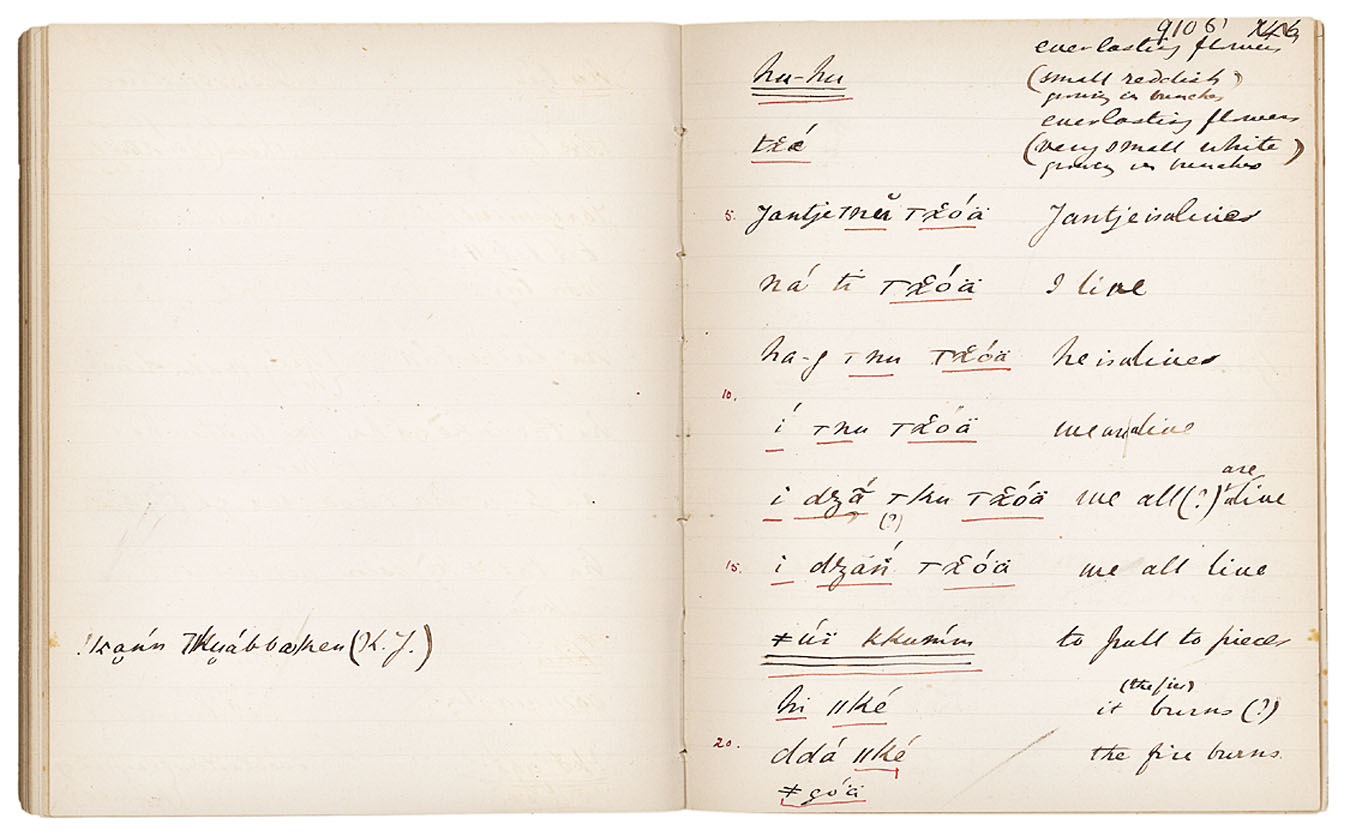 !kaṵ́n Ͳkṷábbaken (K. J.)
9106'
hu-hu everlasting flowers
(small reddish)
growing in bunches
everlasting flowers
tẋá (very small white)
growing in bunches
5. Jantje тnŭ тẋóä Jantje is alive
ná ti тẋóä I live
ha-g тnu тẋóä he is alive
10.
í тnu тẋóä we are alive
are
i dzá̃ тku тẋóä we all (?) alive
(?)
15. i dzáń тẋóä we all live
≠úï kkumm to pull to pieces
(the fire)
hi ǁké it burns (?)
20. ddá ǁké the fire burns.
≠góä